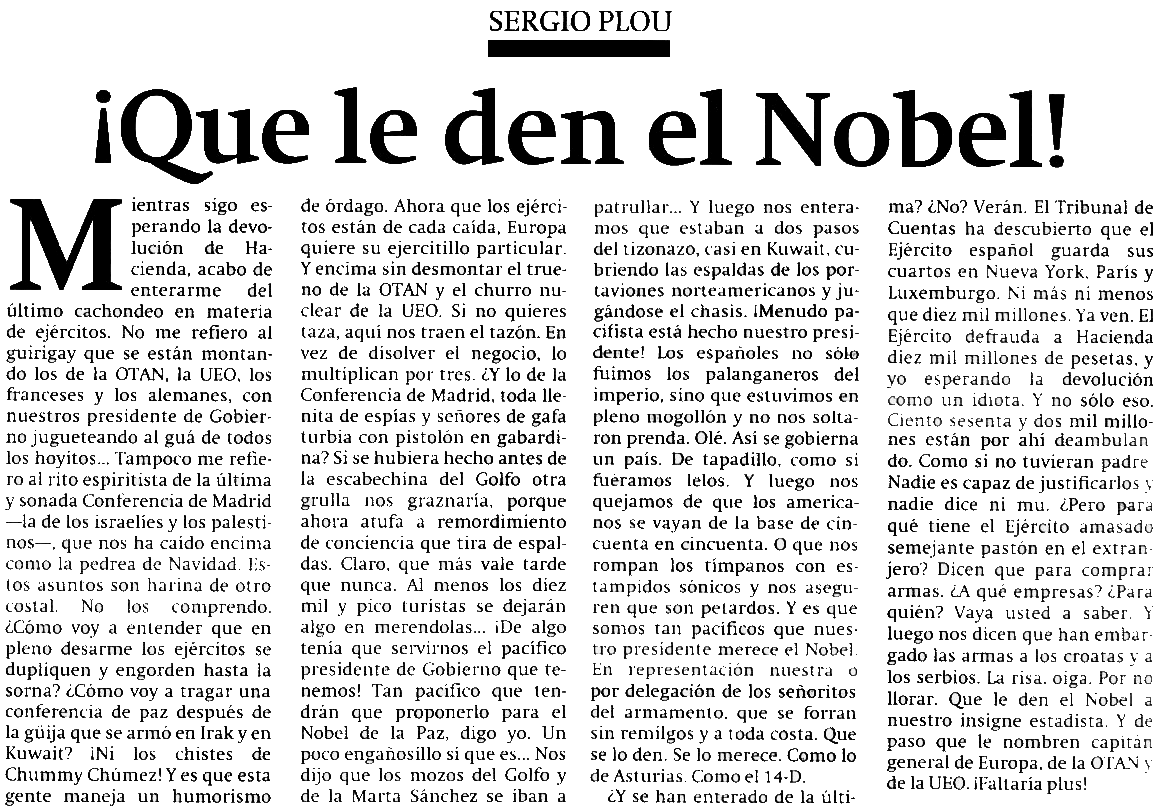 SERGIO PLOU
¡Que le den el Nobel!
Mientras sigo es-
perando la devo-
lución de Ha-
cienda, acabo de
enterarme del
último cachondeo en materia
de ejércitos. No me refiero al
guirigay que se están montan-
do los de la OTAN, la UEO, los
franceses y los alemanes, con
nuestros presidente de Gobier-
no jugueteando al guá de todos
los hoyitos... Tampoco me refie-
ro al rito espiritista de la última
y sonada Conferencia de Madrid
—la de los israelíes y los palesti-
nos—, que nos ha caído encima
como la pedrea de Navidad. Es-
tos asuntos son harina de otro
costal. No los comprendo.
¿Cómo voy a entender que en
pleno desarme los ejércitos se
dupliquen y engorden hasta la
sorna? ¿Cómo voy a tragar una
conferencia de paz después de
la güija que se armó en Irak y en
Kuwait? ¡Ni los chistes de
Chummy Chúmez! Y es que esta
gente maneja un humorismo
de órdago. Ahora que los ejérci-
tos están de cada caída, Europa
quiere su ejercitillo particular.
Y encima sin desmontar el true-
no de la OTAN y el churro nu-
clear de la UEO. Si no quieres
taza, aquí nos traen el tazón. En
vez de disolver el negocio, lo
multiplican por tres. ¿Y lo de la
Conferencia de Madrid, toda lle-
nita de espías y señores de gafa
turbia con pistolón en gabardi-
na? Si se hubiera hecho antes de
la escabechina del Golfo otra
grulla nos graznaría, porque
ahora atufa a remordimiento
de conciencia que tira de espal-
das. Claro, que más vale tarde
que nunca. Al menos los diez
mil y pico turistas se dejarán
algo en merendolas... ¡De algo
tenía que servirnos el pacífico
presidente de Gobierno que te-
nemos! Tan pacífico que ten-
drán que proponerlo para el
Nobel de la Paz, digo yo. Un
poco engañosillo sí que es... Nos
dijo que los mozos del Golfo y
de la Marta Sánchez se iban a
patrullar... Y luego nos entera-
mos que estaban a dos pasos
del tizonazo, casi en Kuwait, cu-
briendo las espaldas de los por-
taviones norteamericanos y ju-
gándose el chasis. ¡Menudo pa-
cifista está hecho nuestro presi-
dente! Los españoles no sólo
fuimos los palanganeros del
imperio, sino que estuvimos en
pleno mogollón y no nos solta-
ron prenda. Olé. Así se gobierna
un país. De tapadillo, como si
fuéramos lelos. Y luego nos
quejamos de que los america-
nos se vayan de la base de cin-
cuenta en cincuenta. O que nos
rompan los tímpanos con es-
tampidos sónicos y nos asegu-
ren que son petardos. Y es que
somos tan pacíficos que nues-
tro presidente merece el Nobel.
En representación nuestra o
por delegación de los señoritos
del armamento, que se forran
sin remilgos y a toda costa. Que
se lo den. Se lo merece. Como lo
de Asturias. Como el 14-D.
¿Y se han enterado de la últi-
ma? ¿No? Verán. El Tribunal de
Cuentas ha descubierto que el
Ejército español guarda sus
cuartos en Nueva York, París y
Luxemburgo. Ni más ni menos
que diez mil millones. Ya ven. El
Ejército defrauda a Hacienda
diez mil millones de pesetas, y
yo esperando la devolución
como un idiota. Y no sólo eso.
Ciento sesenta y dos mil millo-
nes están por ahí deambulan
do. Como si no tuvieran padre
Nadie es capaz de justificarlos y
nadie dice ni mu. ¿Pero para
qué tiene el Ejército amasado
semejante pastón en el extran-
jero? Dicen que para comprar
armas. ¿A qué empresas? ¿Para
quién? Vaya usted a saber. Y
luego nos dicen que han embar-
gado las armas a los croatas y a
los serbios. La risa, oiga. Por no
llorar. Que le den el Nobel a
nuestro insigne estadista. Y de
paso que le nombren capitán
general de Europa, de la OTAN y
de la UEO. ¡Faltaría plus!